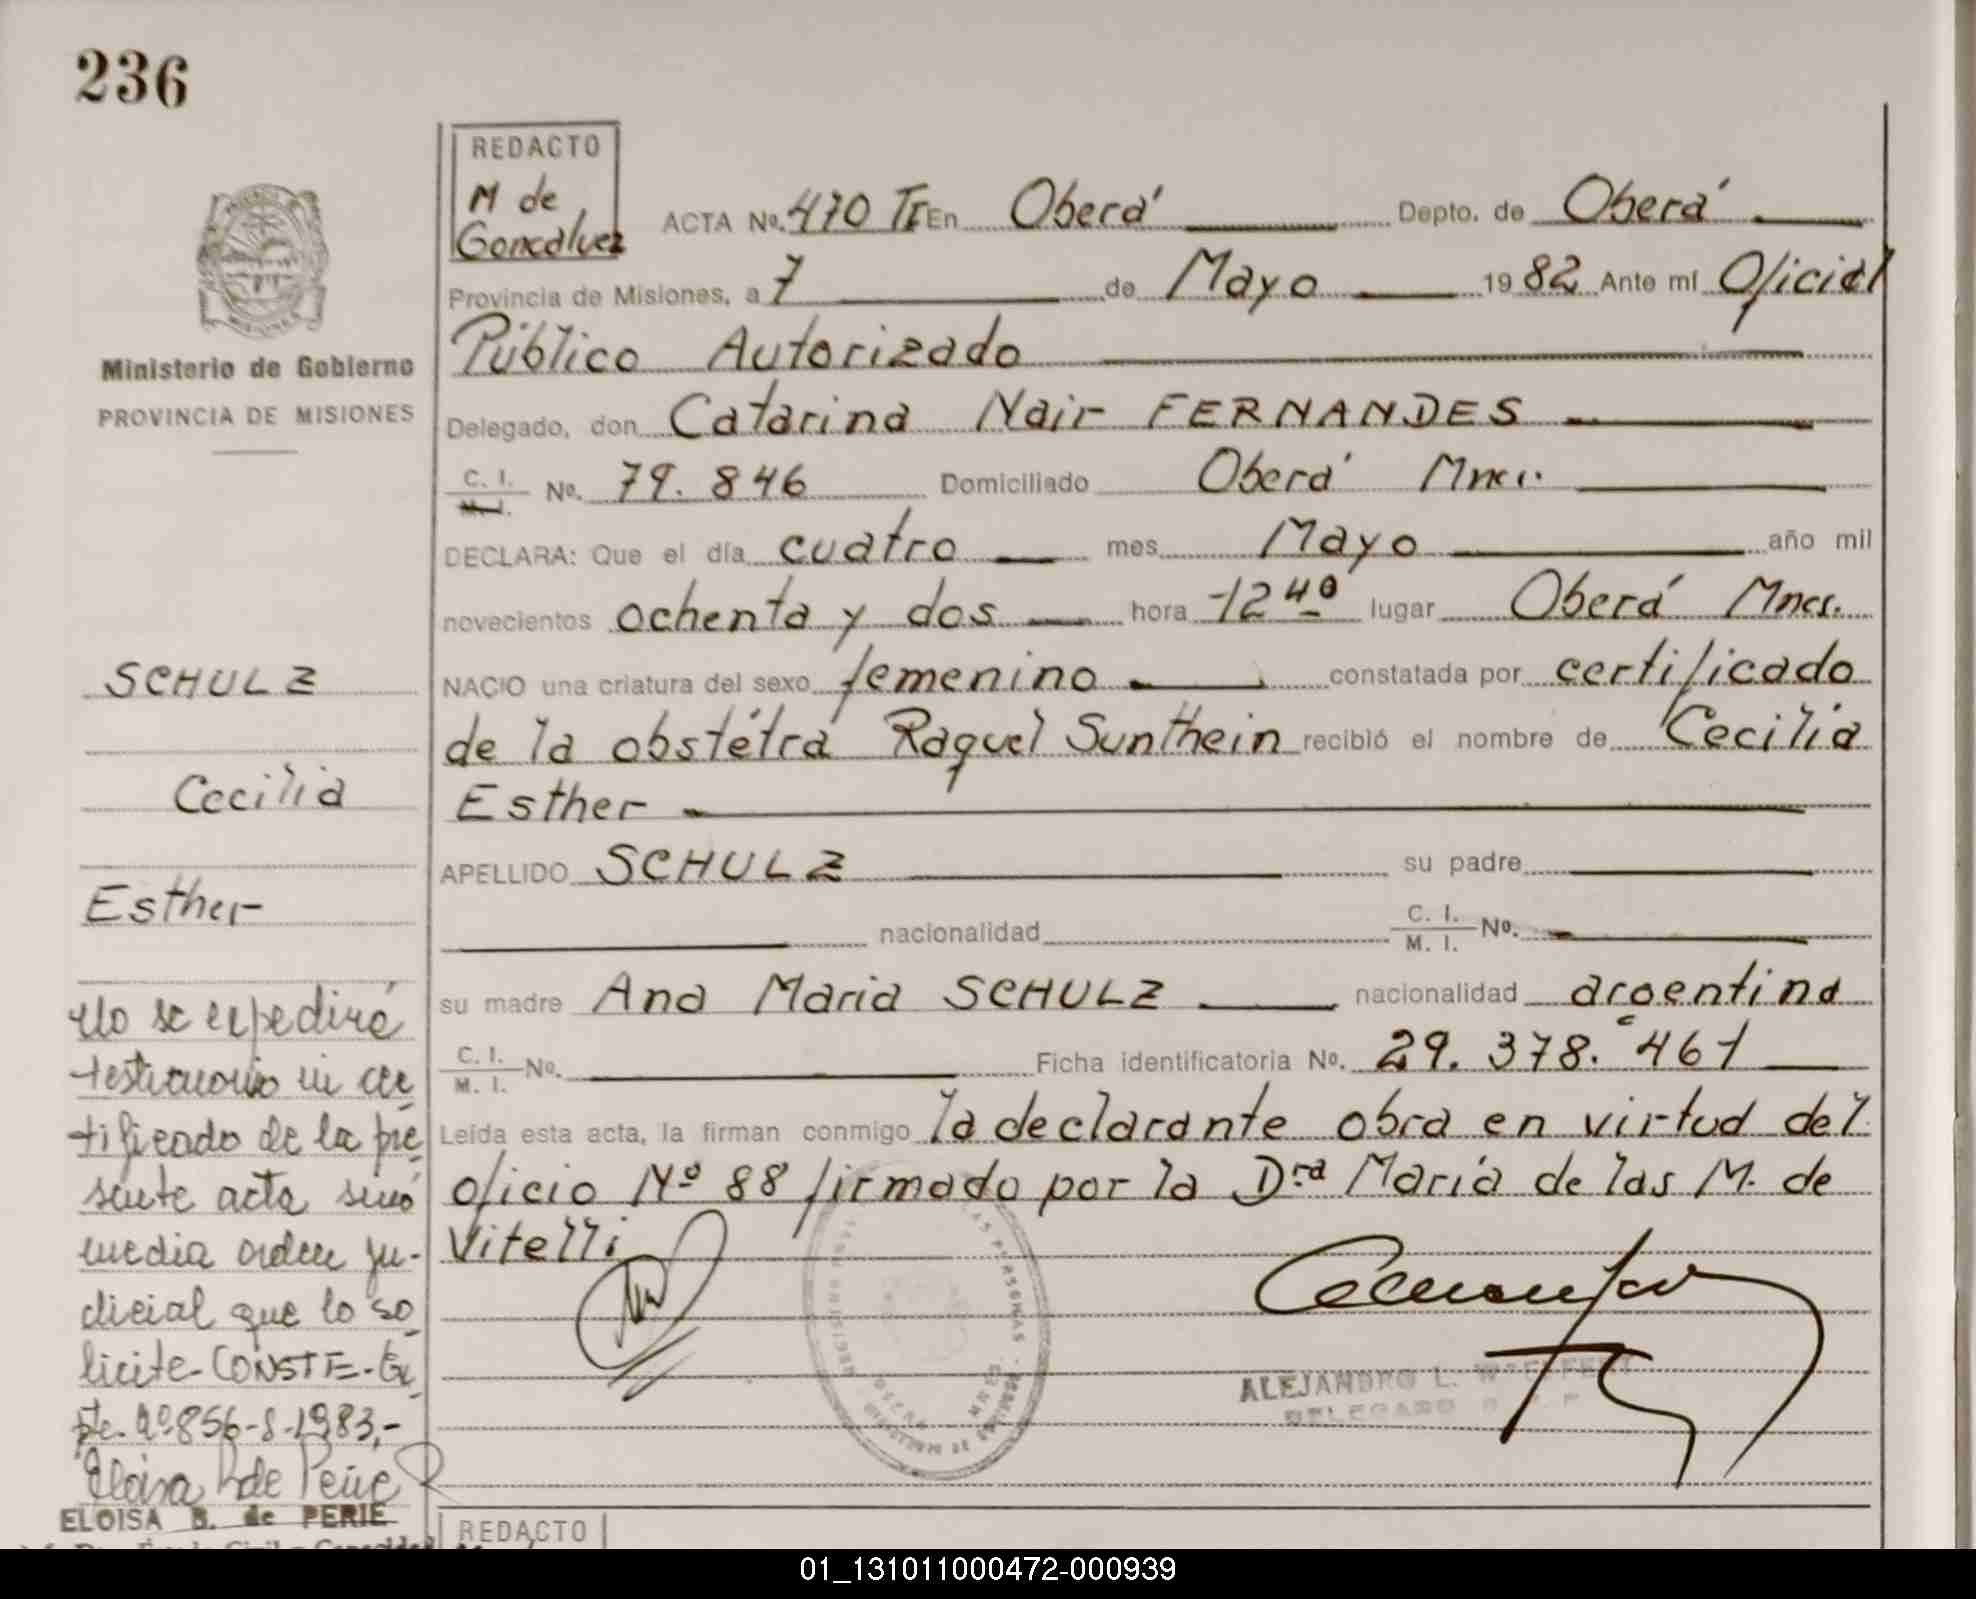 236
REDACTO
M de
Goncalvez
ACTA No. 470 TI En Oberá Depto. de Oberá
Provincia de Misiones, a 7 de Mayo 1982 Ante mí Oficial
Público Autorizado
Delegado, don Catarina Nair FERNANDES
C. I. No. 79.846 Domiciliado Oberá Mnes.
DECLARA: Que el día cuatro mes Mayo año mil
novecientos ochenta y dos hora 12 40 lugar Oberá Mnes.
NACIO una criatura del sexo femenino constatada por certificado
de la obstétra Raquel Sunthein recibió el nombre de Cecilia
Esther
APELLIDO SCHULZ su padre
nacionalidad C. I. M. I. No.
su madre Ana Maria SCHULZ nacionalidad argentina
C. I. M. I. No. Ficha identificatoria No. 29.378.461
Leída esta acta, la firman conmigo la declarante obra en virtud del
oficio Nº 88 firmado por la Dra María de las M. de
Vitelli
ALEJANDRO L.
DELEGADO
Ministerio de Gobierno
PROVINCIA DE MISIONES
SCHULZ
Cecilia
Esther
No se expedirá
testimonio ni cer-
tificado de la pre-
sente acta sinó
media orden ju-
dicial que lo so-
licite- CONSTE- Ex-
pte. nº 856-S-1983,-
Eloisa B de Perie
ELOISA B. de PERIE
REDACTO
01_131011000472-000939